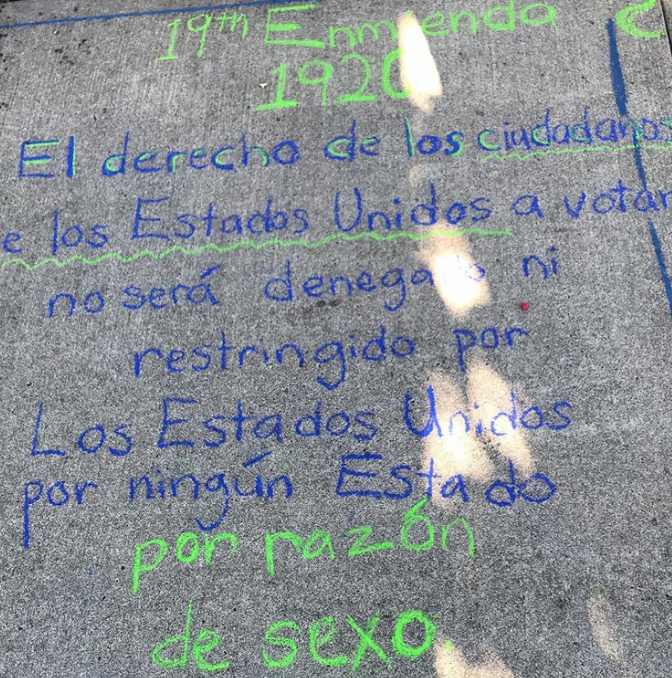 19th Enmienda
1920
El derecho de los ciudadanos
e los Estados Unidos a votar
no será denegado ni
restringido por
Los Estados Unidos
por ningún Estado
por razón
de sexo.